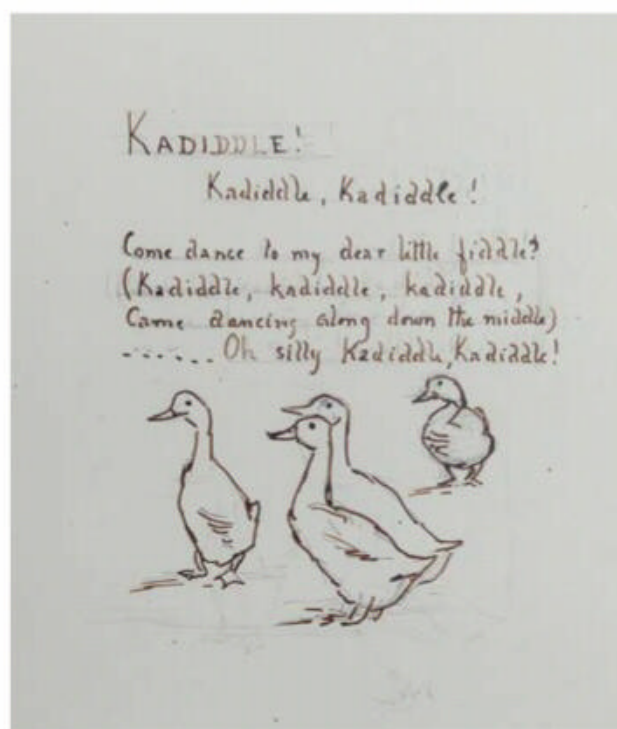 KADIDDLE!
Kadiddle, Kadiddle!
Come dance to my dear little fiddle?
(Kadiddle, kadiddle, kadiddle,
Came dancing along down the middle)
....... Oh silly Kadiddle, Kadiddle!